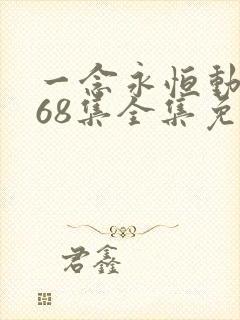 一念永恒動
68集全集免
君鑫